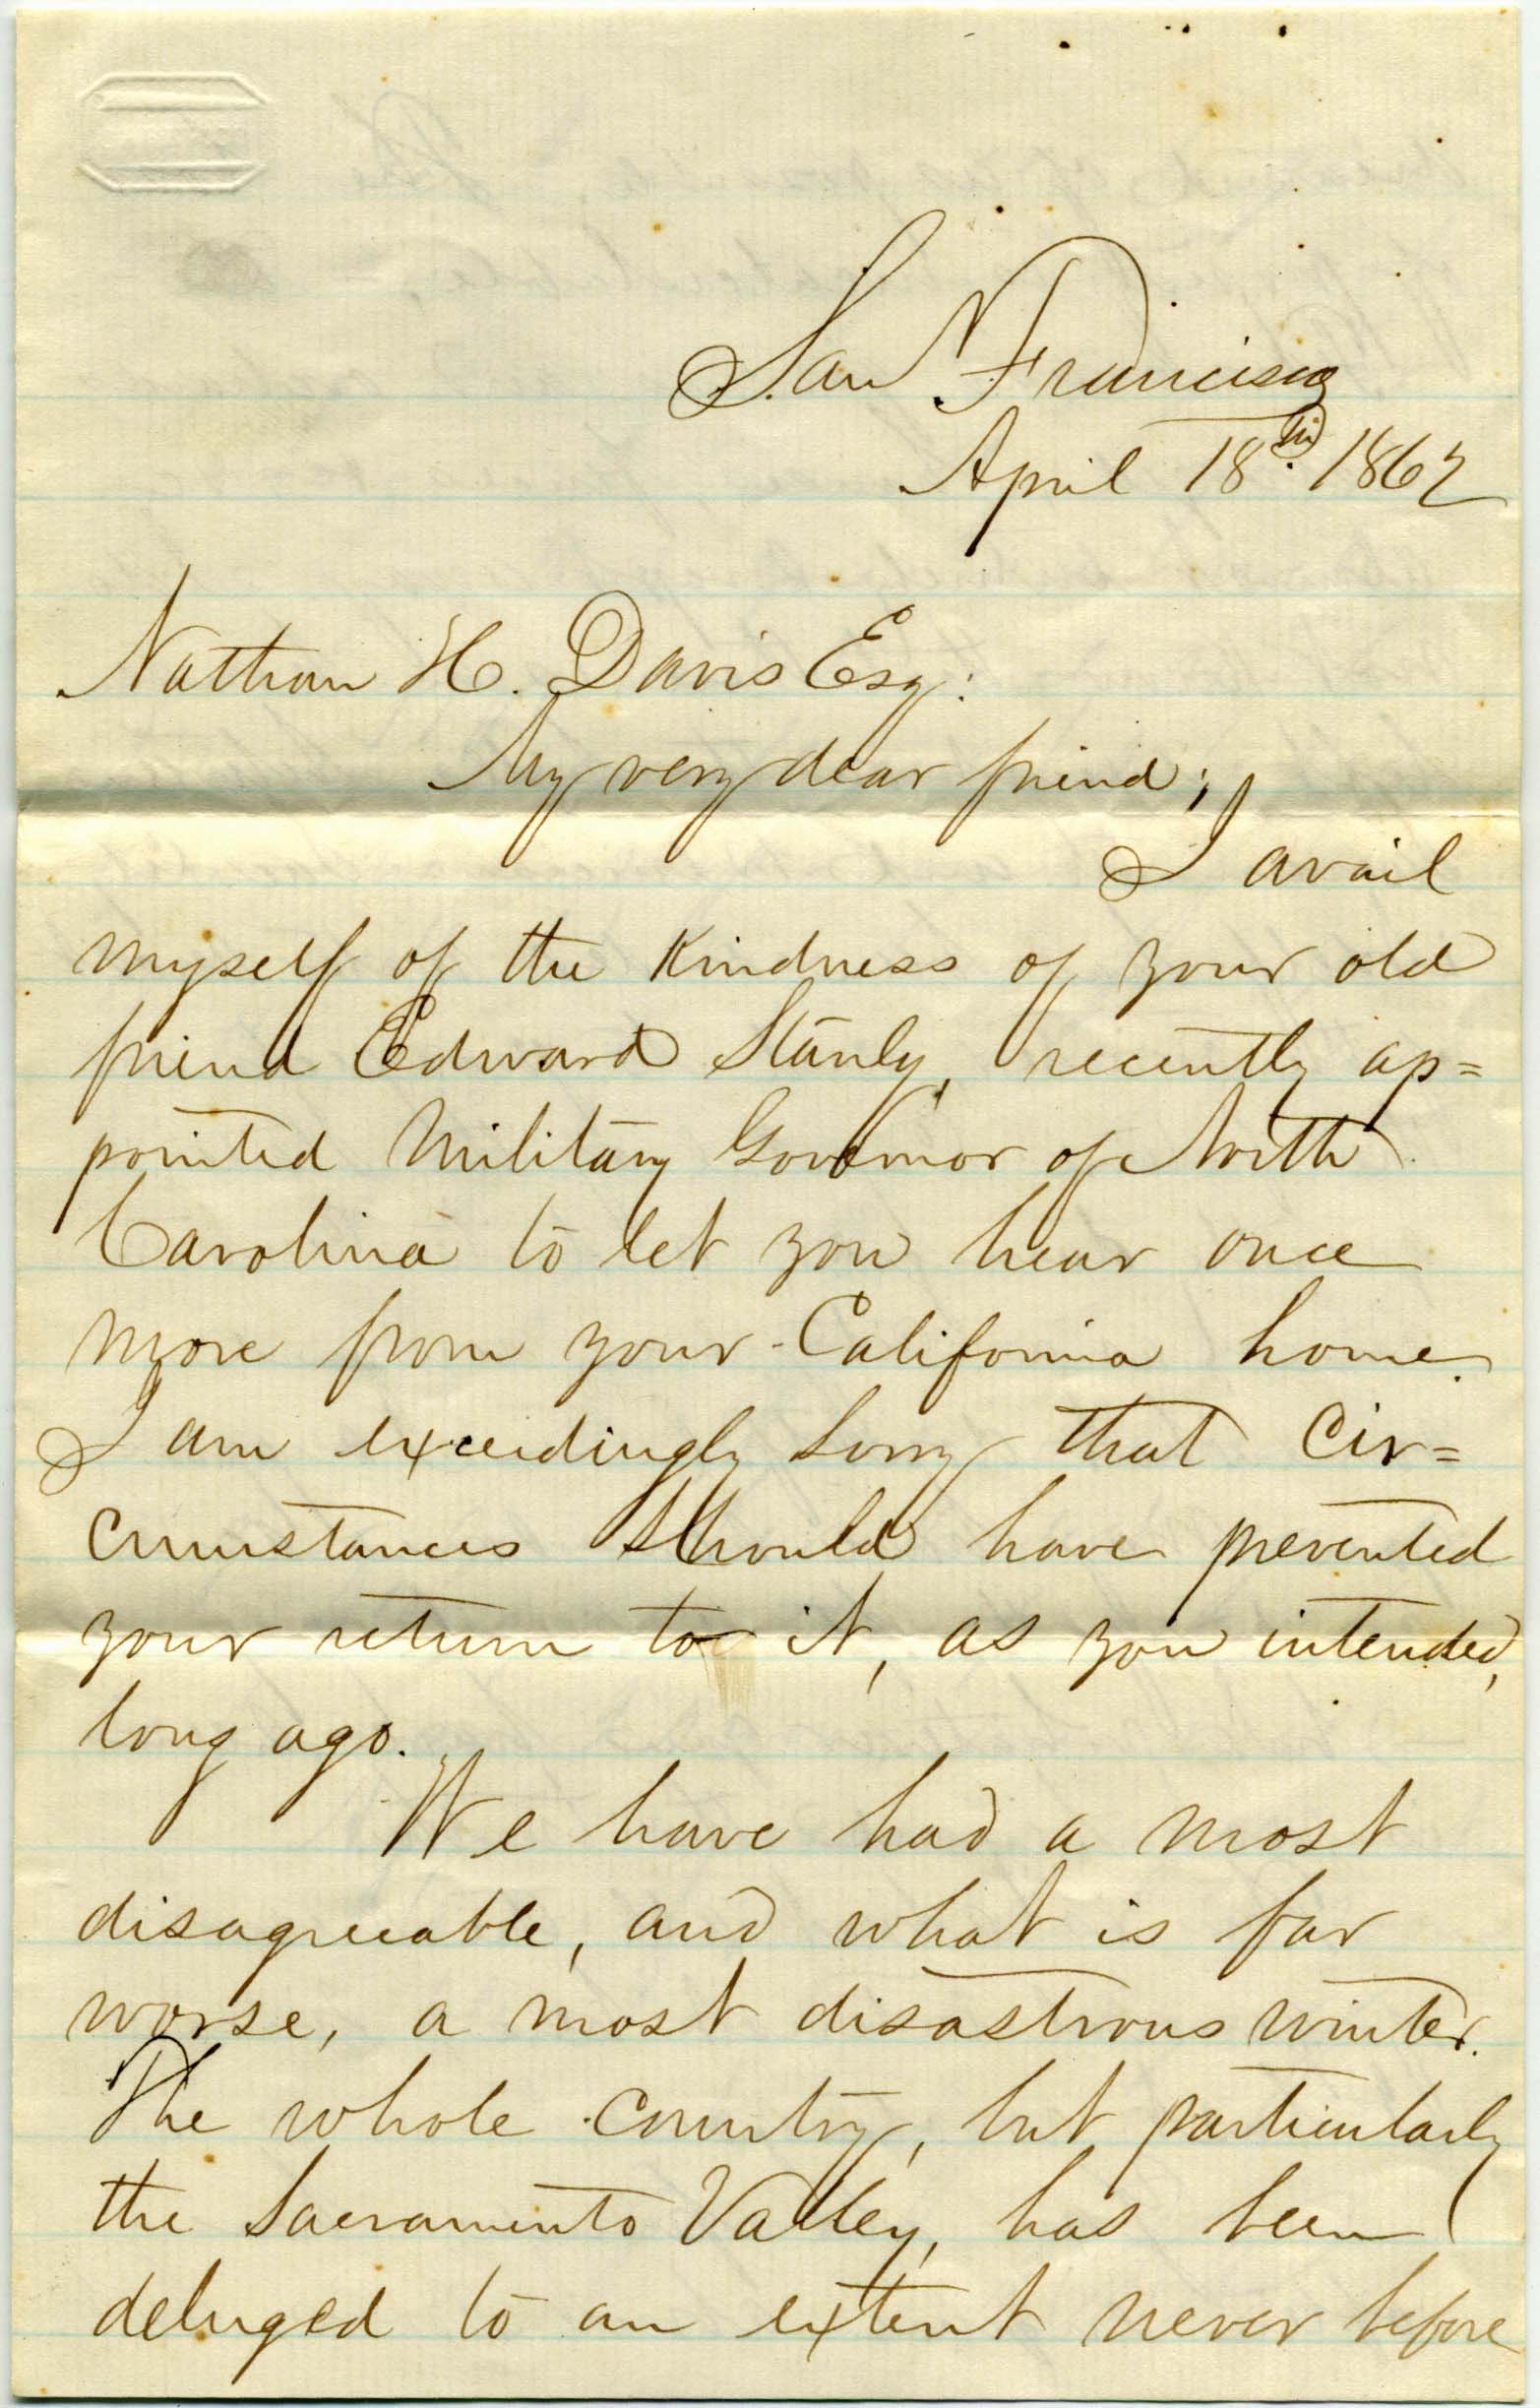 San Francisco
April 18th. 1862
Nathan H. Davis Esq:
My very dear friend;
I avail
myself of the Kindness of your old
friend Edward Stanly, recently ap=
pointed Military Governor of North
Carolina to let you hear once
more from your California home.
I am exceedingly sorry that Cir=
cumstances should have prevented
your return to it, as you intended,
long ago.
We have had a most
disagreeable, and what is far
worse, a most disastrous winter.
The whole country, but particularly
the Sacramento Valley, has been
deluged to an extent never before